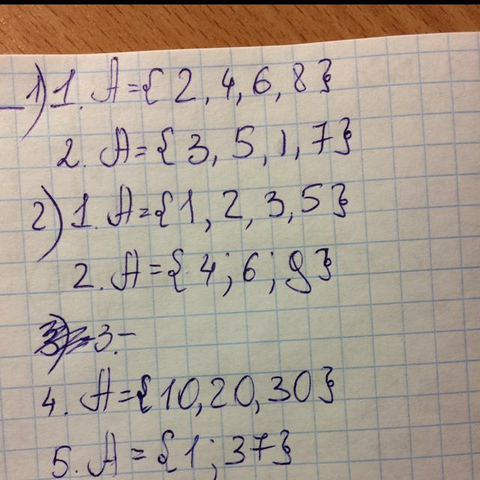 1) 1. A={2, 4, 6, 8}
2. A={3, 5, 1, 7}
2) 1. A={1, 2, 3, 5}
2. A={4; 6; 9}
3.-
4. A={10, 20, 30}
5. A={1; 37}